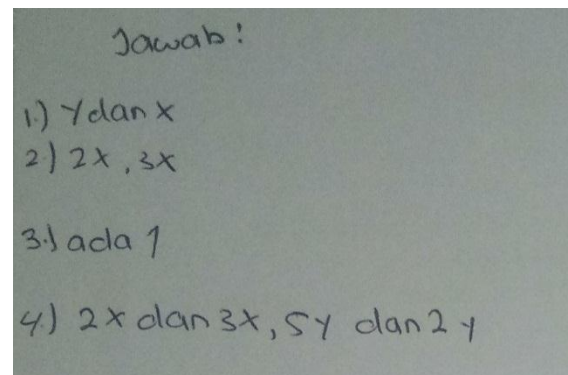 Jawab:
1.) Y dan X
2) 2X, 3X
3.) ada 1
4.) 2X dan 3X, 5Y dan 2Y